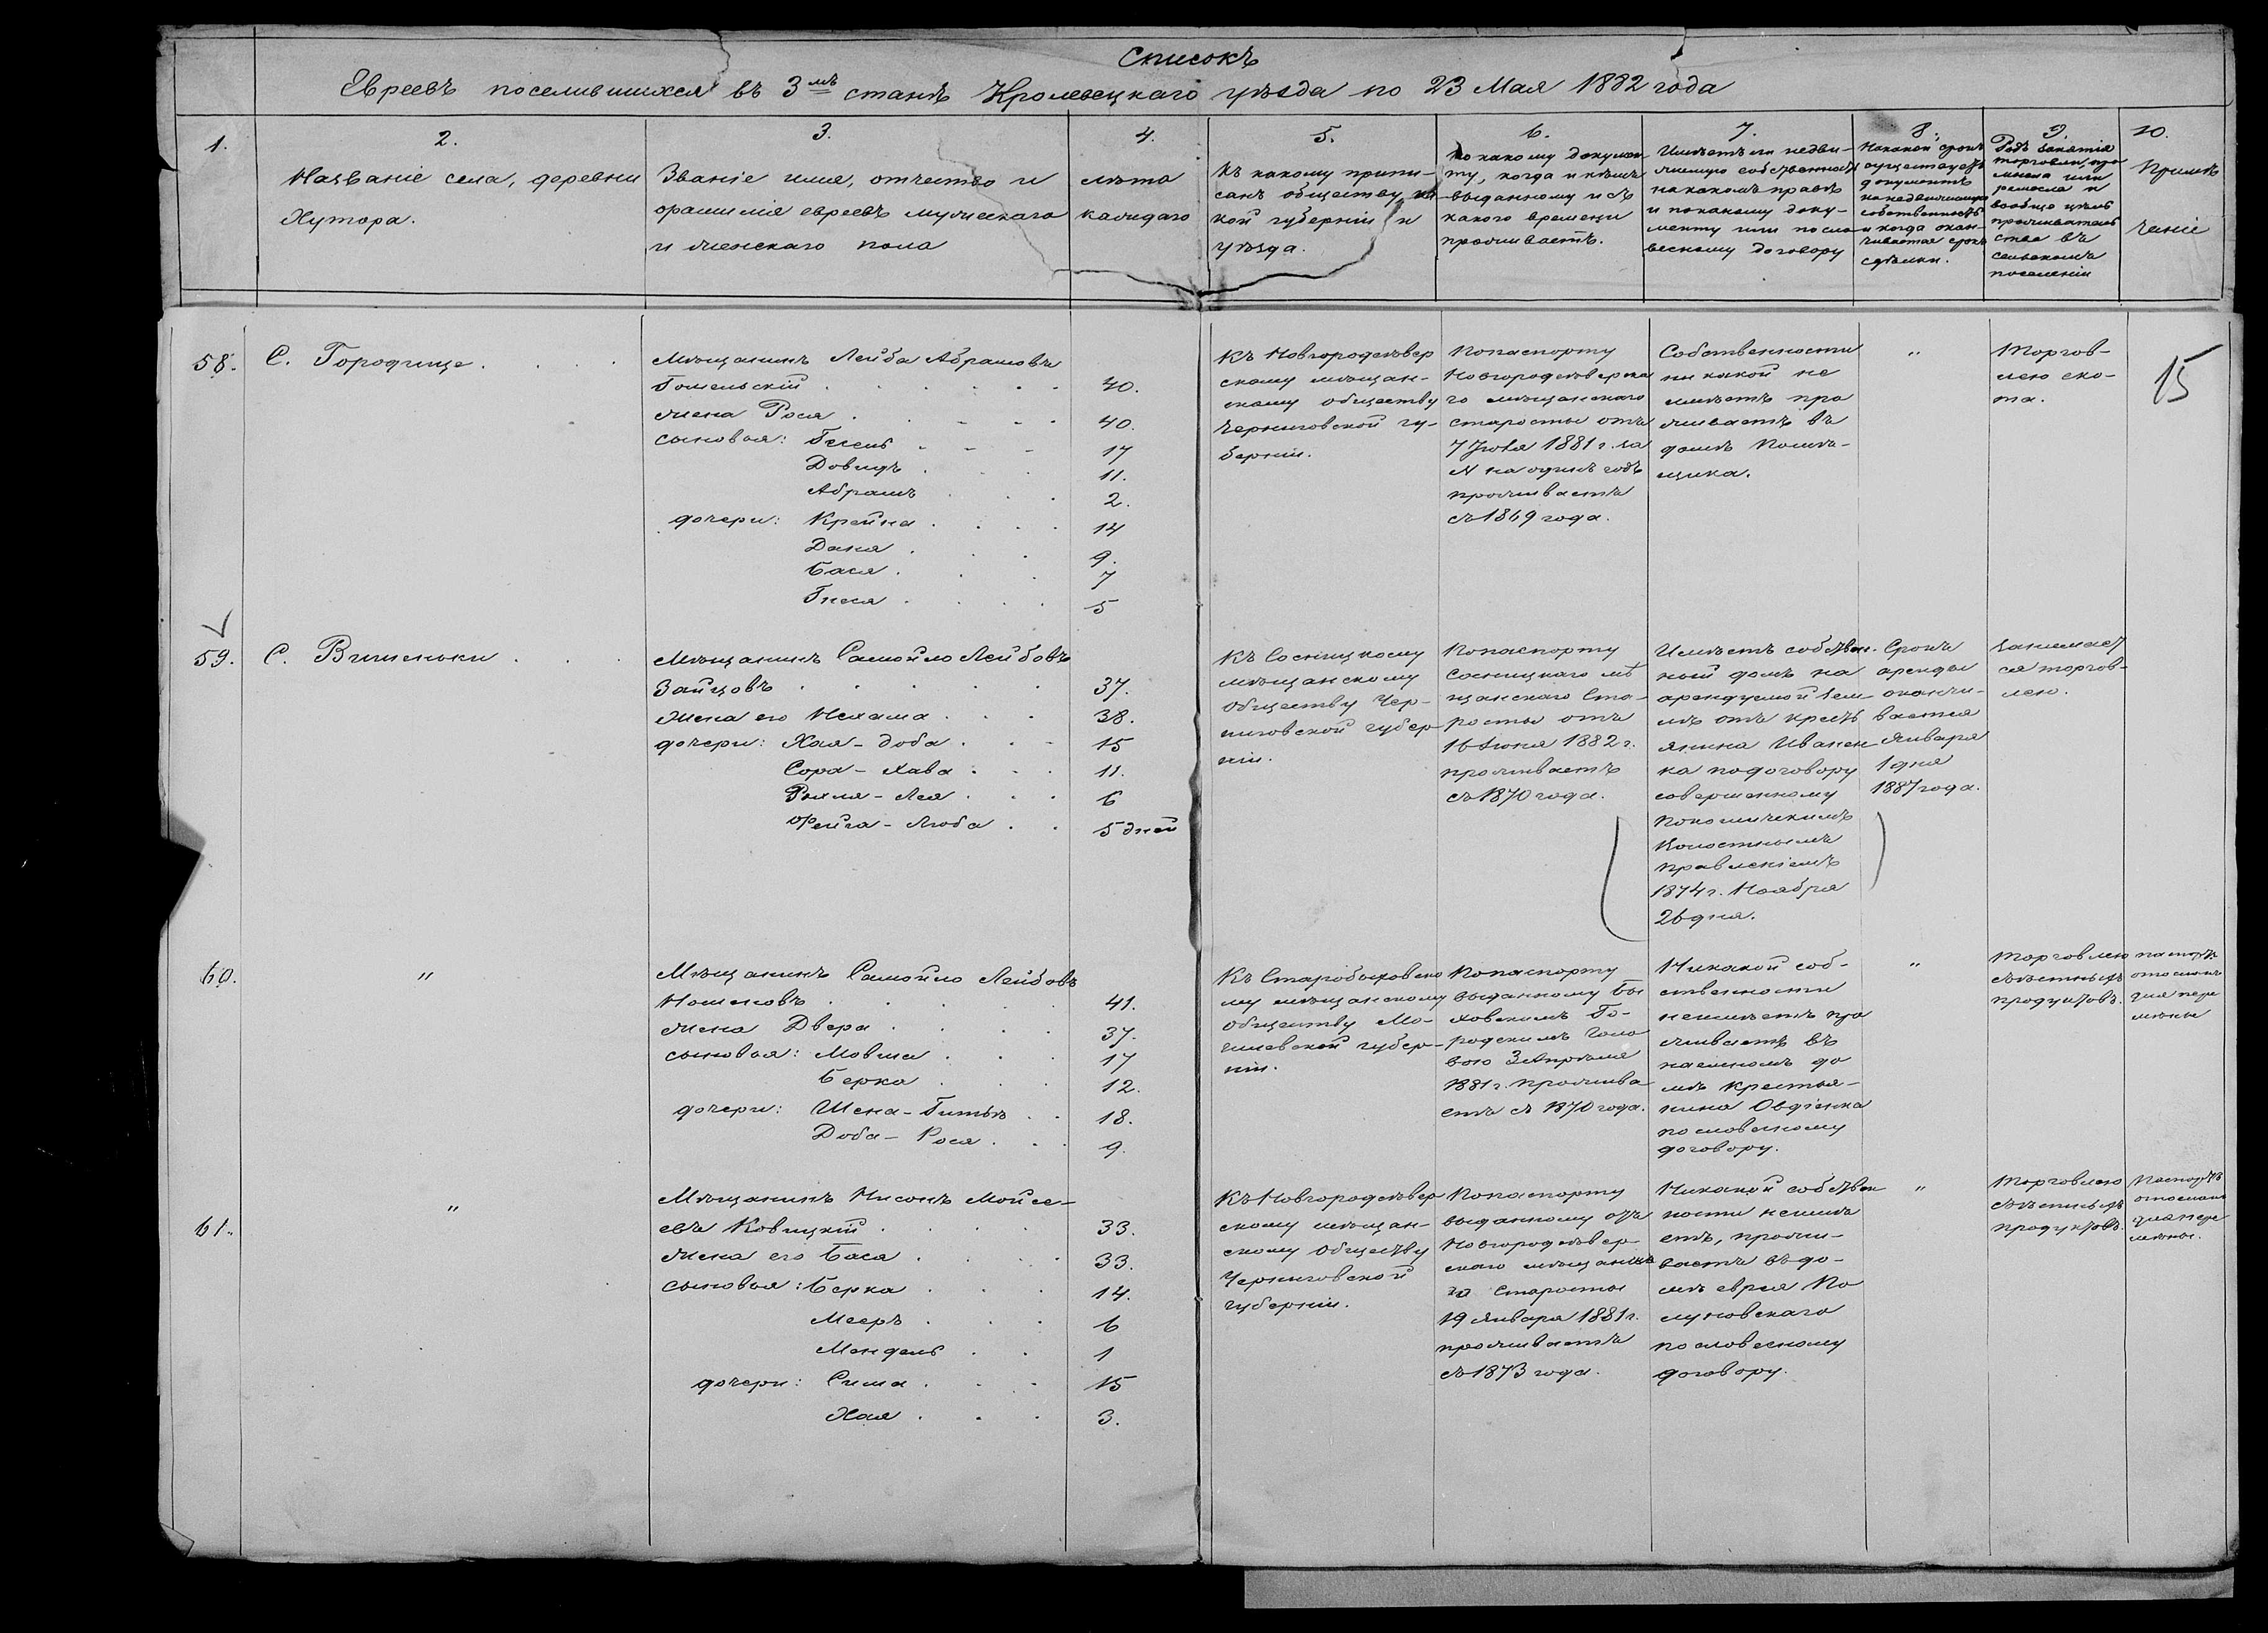 Списокъ
Евреевъ поселившихся въ 3мъ станѣ Кролевецкаго уѣзда по 23 Мая 1882 года
1.
2.
Названіе села, деревни
Хутора.
3.
Званіе имя, отчество и
фамилія евреевъ мужескаго
и женскаго пола
4.
лѣта
каждаго
5.
Къ какому припи-
санъ обществу, ка
кой губерніи и
уѣзда.
6.
По какому докумен
ту, когда и кѣмъ
выданному и съ
какого времени
проживаетъ.
7.
Имѣетъ ли недви-
жимую собственность
на какомъ правѣ
и по какому доку-
менту или по сло
весному договору
8.
На какой срокъ
существуетъ
документъ
на недвижимую
собственность
и когда окан-
чивается срокъ
сдѣлки.
9.
Родъ занятія
торговли, про
мысла или
ремесла и
вообще цѣль
проживатель
ства въ
сельскомъ
поселеніи
10.
Примѣ
чаніе
15
58.
С. Городище
Мѣщанинъ Лейба Абрамовъ
Гомельскій 40.
жена Рося 40.
сыновья: 17
Довидъ 11.
Абрамъ 2.
дочери: Крейна 14
Даня 9.
Бася 7
Гнеся 5
Къ Новгородсѣвер
скому мѣщан-
скому обществу
Черниговской гу-
берніи.
По паспорту
Новгородсѣверска
го мѣщанскаго
старосты отъ
7 Іюля 1881 г. за
№ на одинъ годъ
проживаетъ
съ 1869 года.
Собственности
ни какой не
имѣетъ про
живаетъ въ
домѣ Помѣ-
щика.
"
Торгов-
лею ско-
та.
59.
С. Вишеньки
Мѣщанинъ Самойло Лейбовъ
Зайцовъ 37.
жена его Нехама 38.
дочери: Хая-Доба 15
Сора-Хава 11.
Рыхля-Лея 6
Фейга-Люба 5 дней
Къ Сосницкому
мѣщанскому
обществу Чер-
ниговской губер
ніи.
По паспорту
Сосницкаго мѣ
щанскаго Ста-
росты отъ
16 Іюня 1882 г.
проживаетъ
съ 1870 года.
Имѣетъ собствен-
ный домъ на
арендуемой зем-
лѣ отъ крестъ
янина Иванен
ка по договору
совершенному
Понорницкимъ
Волостнымъ
правленіемъ
1874 г. Ноября
26 дня.
Срокъ
аренды
окончи-
вается
Января
1 дня
1887 года.
Занимает
ся торгов-
лею.
60.
"
Мѣщанинъ Самойло Лейбовъ
Ношеновъ 41.
жена Двера 37.
сыновья: Мовша 17
Берка 12.
дочери: Шена-Гитля 18.
Доба-Рося 9.
Къ Старобыховско
му мѣщанскому
обществу Мо-
гилевской губер-
ніи.
По паспорту
выданному Бы
ховскимъ Го-
родскимъ Голо
вою 3 Апрѣля
1881 г. прожива
етъ съ 1870 года.
Никакой соб-
ственности
не имѣетъ про
живаетъ въ
наемномъ до
мѣ крестья-
нина Овдіенка
по словесному
договору.
"
Торговлею
съѣстныхъ
продуктовъ.
паспортъ
отосланъ
для пере
мѣны
61.
"
Мѣщанинъ Нисонъ Мойсе-
евъ Ковицкій 33.
жена его Бася 33.
сыновья: Берка 14.
Мееръ 6
Мендель 1
дочери: Сима 15
Хая 3.
Къ Новгородсѣвер
скому мѣщан-
скому обществу
Черниговской
губерніи.
По паспорту
выданному отъ
Новгородсѣвер-
скаго мѣщанска
го Старосты
19 Января 1881 г.
проживаетъ
съ 1873 года.
Никакой собствен
ности не имѣ
етъ, прожи-
ваетъ въ до-
мѣ еврея По
луновскаго
по словесному
договору.
"
Торговлею
съѣстныхъ
продуктовъ.
Паспортъ
отосланъ
для пере
мѣны.